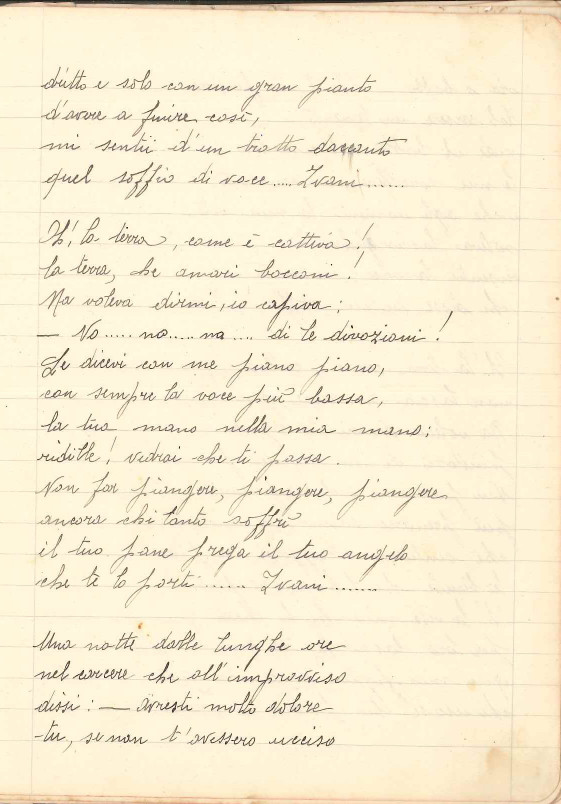 dritto e solo con un gran pianto
d'avere a finire così,
mi sentii d'un tratto daccanto
quel soffio di voce..... Zvanì......
Oh! la terra, come è cattiva!
la terra, che amari bocconi!
Ma voleva dirmi, io capiva;
— No..... no..... no.... di le divozioni!
Le dicevi con me piano piano,
con sempre la voce più bassa,
la tua mano nella mia mano;
ridille! vedrai che ti passa.
Non far piangere, piangere, piangere
ancora chi tanto soffrì
il tuo pane prega il tuo angelo
che te lo porti....... Zvanì.......
Una notte dalle lunghe ore
nel carcere che all'improvviso
dissi: — avresti molto dolore
tu, se non t'avessero ucciso